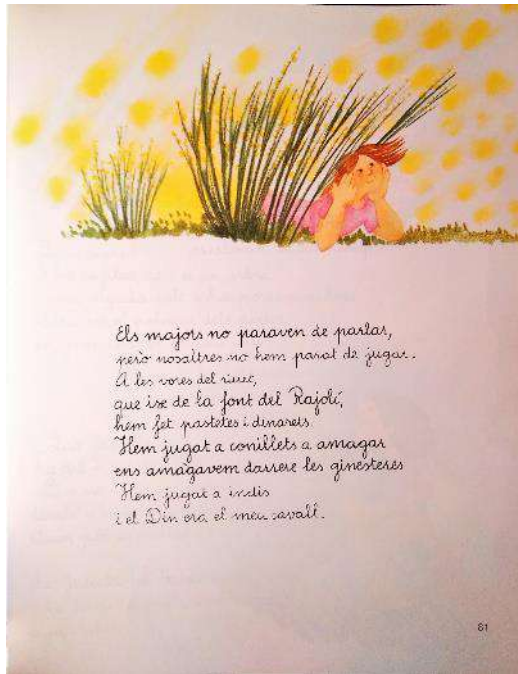 Els majors no paraven de parlar,
però nosaltres no hem parat de jugar.
A les vores del riuet,
que ix de la font del Rajolí,
hem fet pastetes i dinarets.
Hem jugat a conillets a amagar
ens amagàvem darrere les ginesteres
Hem jugat a indis
i el Din era el meu cavall.
61